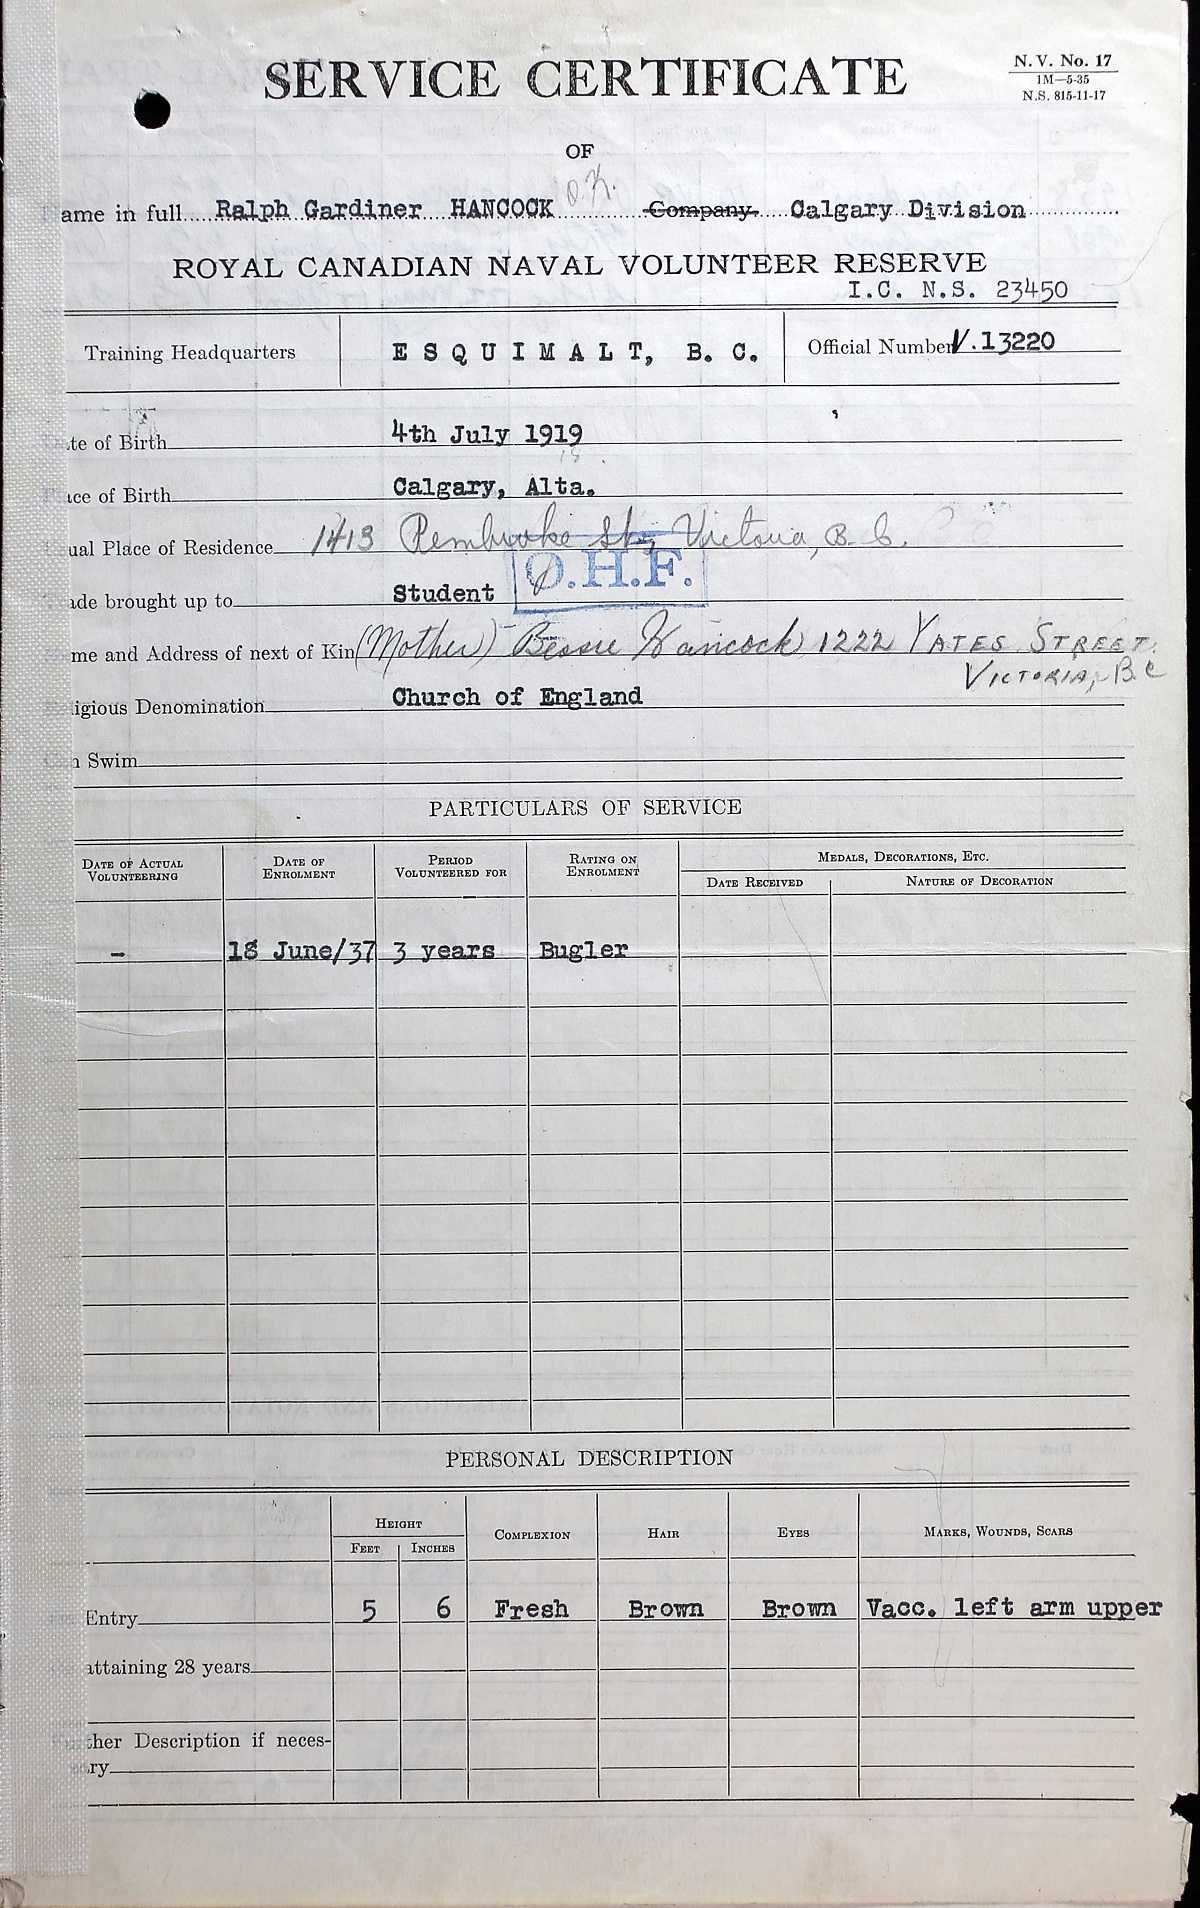 SERVICE CERTIFICATE
N. V. No. 17
1M—5-35
N.S. 815-11-17
OF
O.K.
ame in full Ralph Gardiner HANCOCK Company. Calgary Division
ROYAL CANADIAN NAVAL VOLUNTEER RESERVE
I.C. N.S. 23450
Training Headquarters ESQUIMALT, B. C. Official Number V.13220
te of Birth 4th July 1919
ce of Birth Calgary, Alta.
ual Place of Residence 1413 Pembroke St., Victoria, B. C.
O.H.F.
de brought up to Student
me and Address of next of Kin (Mother) Bessie Hancock 1222 YATES STREET.
VICTORIA, B.C
igious Denomination Church of England
n Swim
PARTICULARS OF SERVICE
DATE OF ACTUAL VOLUNTEERING DATE OF ENROLMENT PERIOD VOLUNTEERED FOR RATING ON ENROLMENT MEDALS, DECORATIONS, ETC.
DATE RECEIVED NATURE OF DECORATION
– 18 June/37 3 years Bugler
PERSONAL DESCRIPTION
HEIGHT COMPLEXION HAIR EYES MARKS, WOUNDS, SCARS
FEET INCHES
Entry 5 6 Fresh Brown Brown Vacc. left arm upper
attaining 28 years
ther Description if neces-
ry